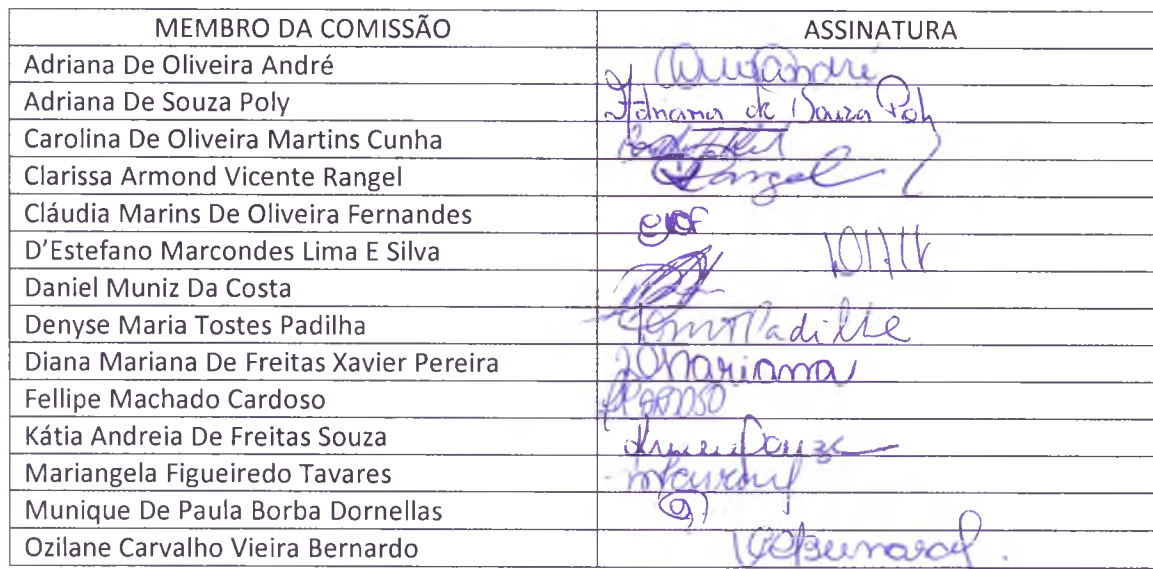 MEMBRO DA COMISSÃO ASSINATURA
Adriana De Oliveira André
Adriana De Souza Poly Adriana de Souza Poly
Carolina De Oliveira Martins Cunha
Clarissa Armond Vicente Rangel Rangel
Cláudia Marins De Oliveira Fernandes
D'Estefano Marcondes Lima E Silva
Daniel Muniz Da Costa
Denyse Maria Tostes Padilha Padilha
Diana Mariana De Freitas Xavier Pereira Mariana
Fellipe Machado Cardoso
Kátia Andreia De Freitas Souza Souza
Mariangela Figueiredo Tavares
Munique De Paula Borba Dornellas
Ozilane Carvalho Vieira Bernardo